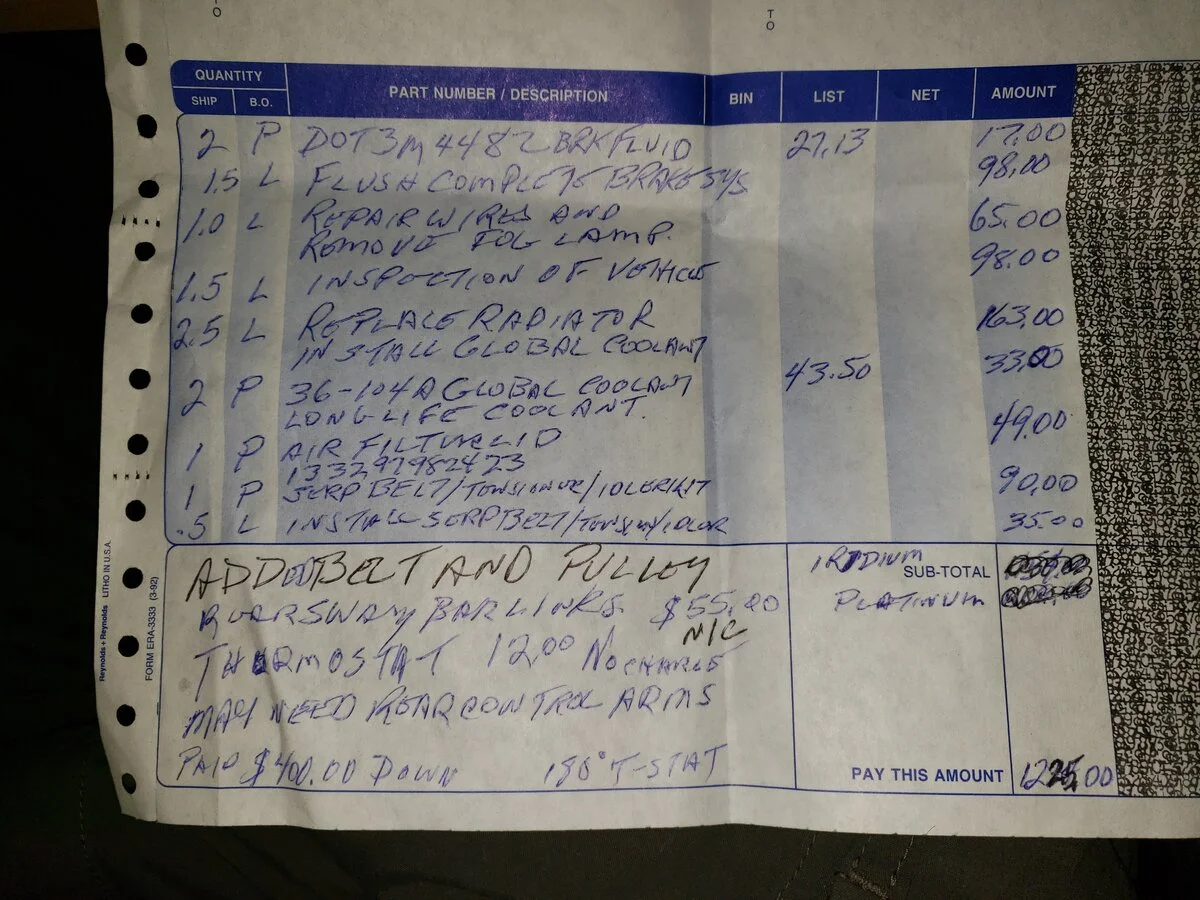 TO
TO
QUANTITY
SHIP B.O. PART NUMBER / DESCRIPTION BIN LIST NET AMOUNT
2 P DOT3M4482 BRK FLUID 27.13 17.00
1.5 L FLUSH COMPLETE BRAKE SYS 98.00
1.0 L REPAIR WIRES AND 65.00
REMOVE FOG LAMP.
1.5 L INSPECTION OF VEHICLE 98.00
2.5 L REPLACE RADIATOR 163.00
INSTALL GLOBAL COOLANT
2 P 36-104A GLOBAL COOLANT 43.50 33.00
LONG LIFE COOLANT.
1 P AIR FILTER LID 49.00
1332979824 23
1 P SERP BELT/TENSIONER/IDLER KIT 90.00
.5 L INSTALL SERP BELT/TENSION/IDLER 35.00
ADDED BELT AND PULLEY
IRIDIUM SUB-TOTAL
REAR SWAY BAR LINKS $55.00
PLATINUM
N/C
THERMOSTAT 12.00 NO CHARGE
MAY NEED REAR CONTROL ARMS
PAID $400.00 DOWN 180° T-STAT
PAY THIS AMOUNT 1225.00
Reynolds + Reynolds LITHO IN U.S.A.
FORM ERA-3333 (3-92)